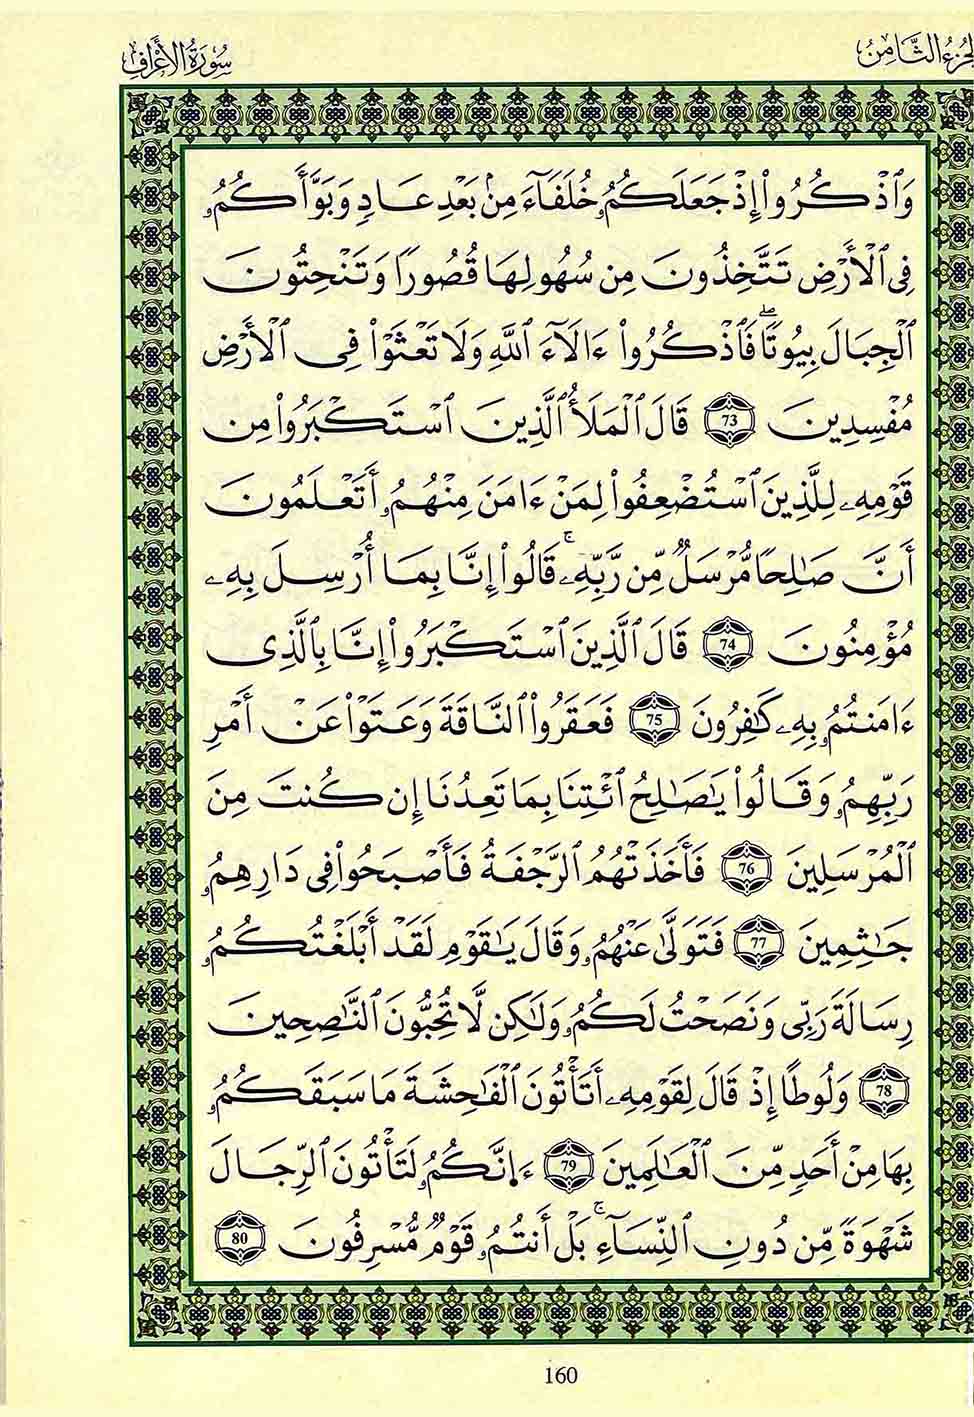 الجزء الثامن
سورة الأعراف
وَٱذْكُرُوا۟ إِذْ جَعَلَكُمُۥ خُلَفَآءَ مِنۢ بَعْدِ عَادٍ وَبَوَّأَكُمُۥ
فِى ٱلْأَرْضِ تَتَّخِذُونَ مِن سُهُولِهَا قُصُورًا وَتَنْحِتُونَ
ٱلْجِبَالَ بِيُوتًا ۖ فَٱذْكُرُوا۟ ءَالَآءَ ٱللَّهِ وَلَا تَعْثَوْا۟ فِى ٱلْأَرْضِ
مُفْسِدِينَ 73 قَالَ ٱلْمَلَأُ ٱلَّذِينَ ٱسْتَكْبَرُوا۟ مِن
قَوْمِهِۦ لِلَّذِينَ ٱسْتُضْعِفُوا۟ لِمَنْ ءَامَنَ مِنْهُمُۥ أَتَعْلَمُونَ
أَنَّ صَٰلِحًا مُّرْسَلٌ مِّن رَّبِّهِۦ ۚ قَالُوا۟ إِنَّا بِمَا أُرْسِلَ بِهِۦ
مُؤْمِنُونَ 74 قَالَ ٱلَّذِينَ ٱسْتَكْبَرُوا۟ إِنَّا بِٱلَّذِى
ءَامَنتُمُۥ بِهِۦ كَٰفِرُونَ 75 فَعَقَرُوا۟ ٱلنَّاقَةَ وَعَتَوْا۟ عَنْ أَمْرِ
رَبِّهِمُۥ وَقَالُوا۟ يَٰصَٰلِحُ ٱئْتِنَا بِمَا تَعِدُنَا إِن كُنتَ مِنَ
ٱلْمُرْسَلِينَ 76 فَأَخَذَتْهُمُ ٱلرَّجْفَةُ فَأَصْبَحُوا۟ فِى دَارِهِمُۥ
جَٰثِمِينَ 77 فَتَوَلَّىٰ عَنْهُمُۥ وَقَالَ يَٰقَوْمِ لَقَدْ أَبْلَغْتُكُمُۥ
رِسَالَةَ رَبِّى وَنَصَحْتُ لَكُمُۥ وَلَٰكِن لَّا تُحِبُّونَ ٱلنَّٰصِحِينَ
78 وَلُوطًا إِذْ قَالَ لِقَوْمِهِۦ أَتَأْتُونَ ٱلْفَٰحِشَةَ مَا سَبَقَكُمُۥ
بِهَا مِنْ أَحَدٍ مِّنَ ٱلْعَٰلَمِينَ 79 ءَا۪نَّكُمُۥ لَتَأْتُونَ ٱلرِّجَالَ
شَهْوَةً مِّن دُونِ ٱلنِّسَآءِ ۚ بَلْ أَنتُمُۥ قَوْمٌ مُّسْرِفُونَ 80
160